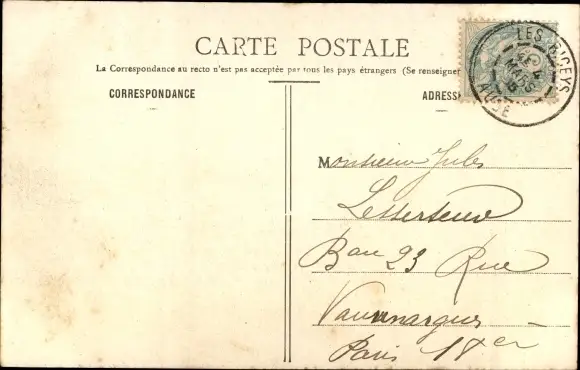 CARTE POSTALE
La Correspondance au recto n'est pas acceptée par tous les pays étrangers (Se renseigner
CORRESPONDANCE
ADRESS
LES RICEYS
4
MARS
AUBE
Monsieur Jules
Letterteure
Bau 23 Rue
Vauvenargues
Paris 18er